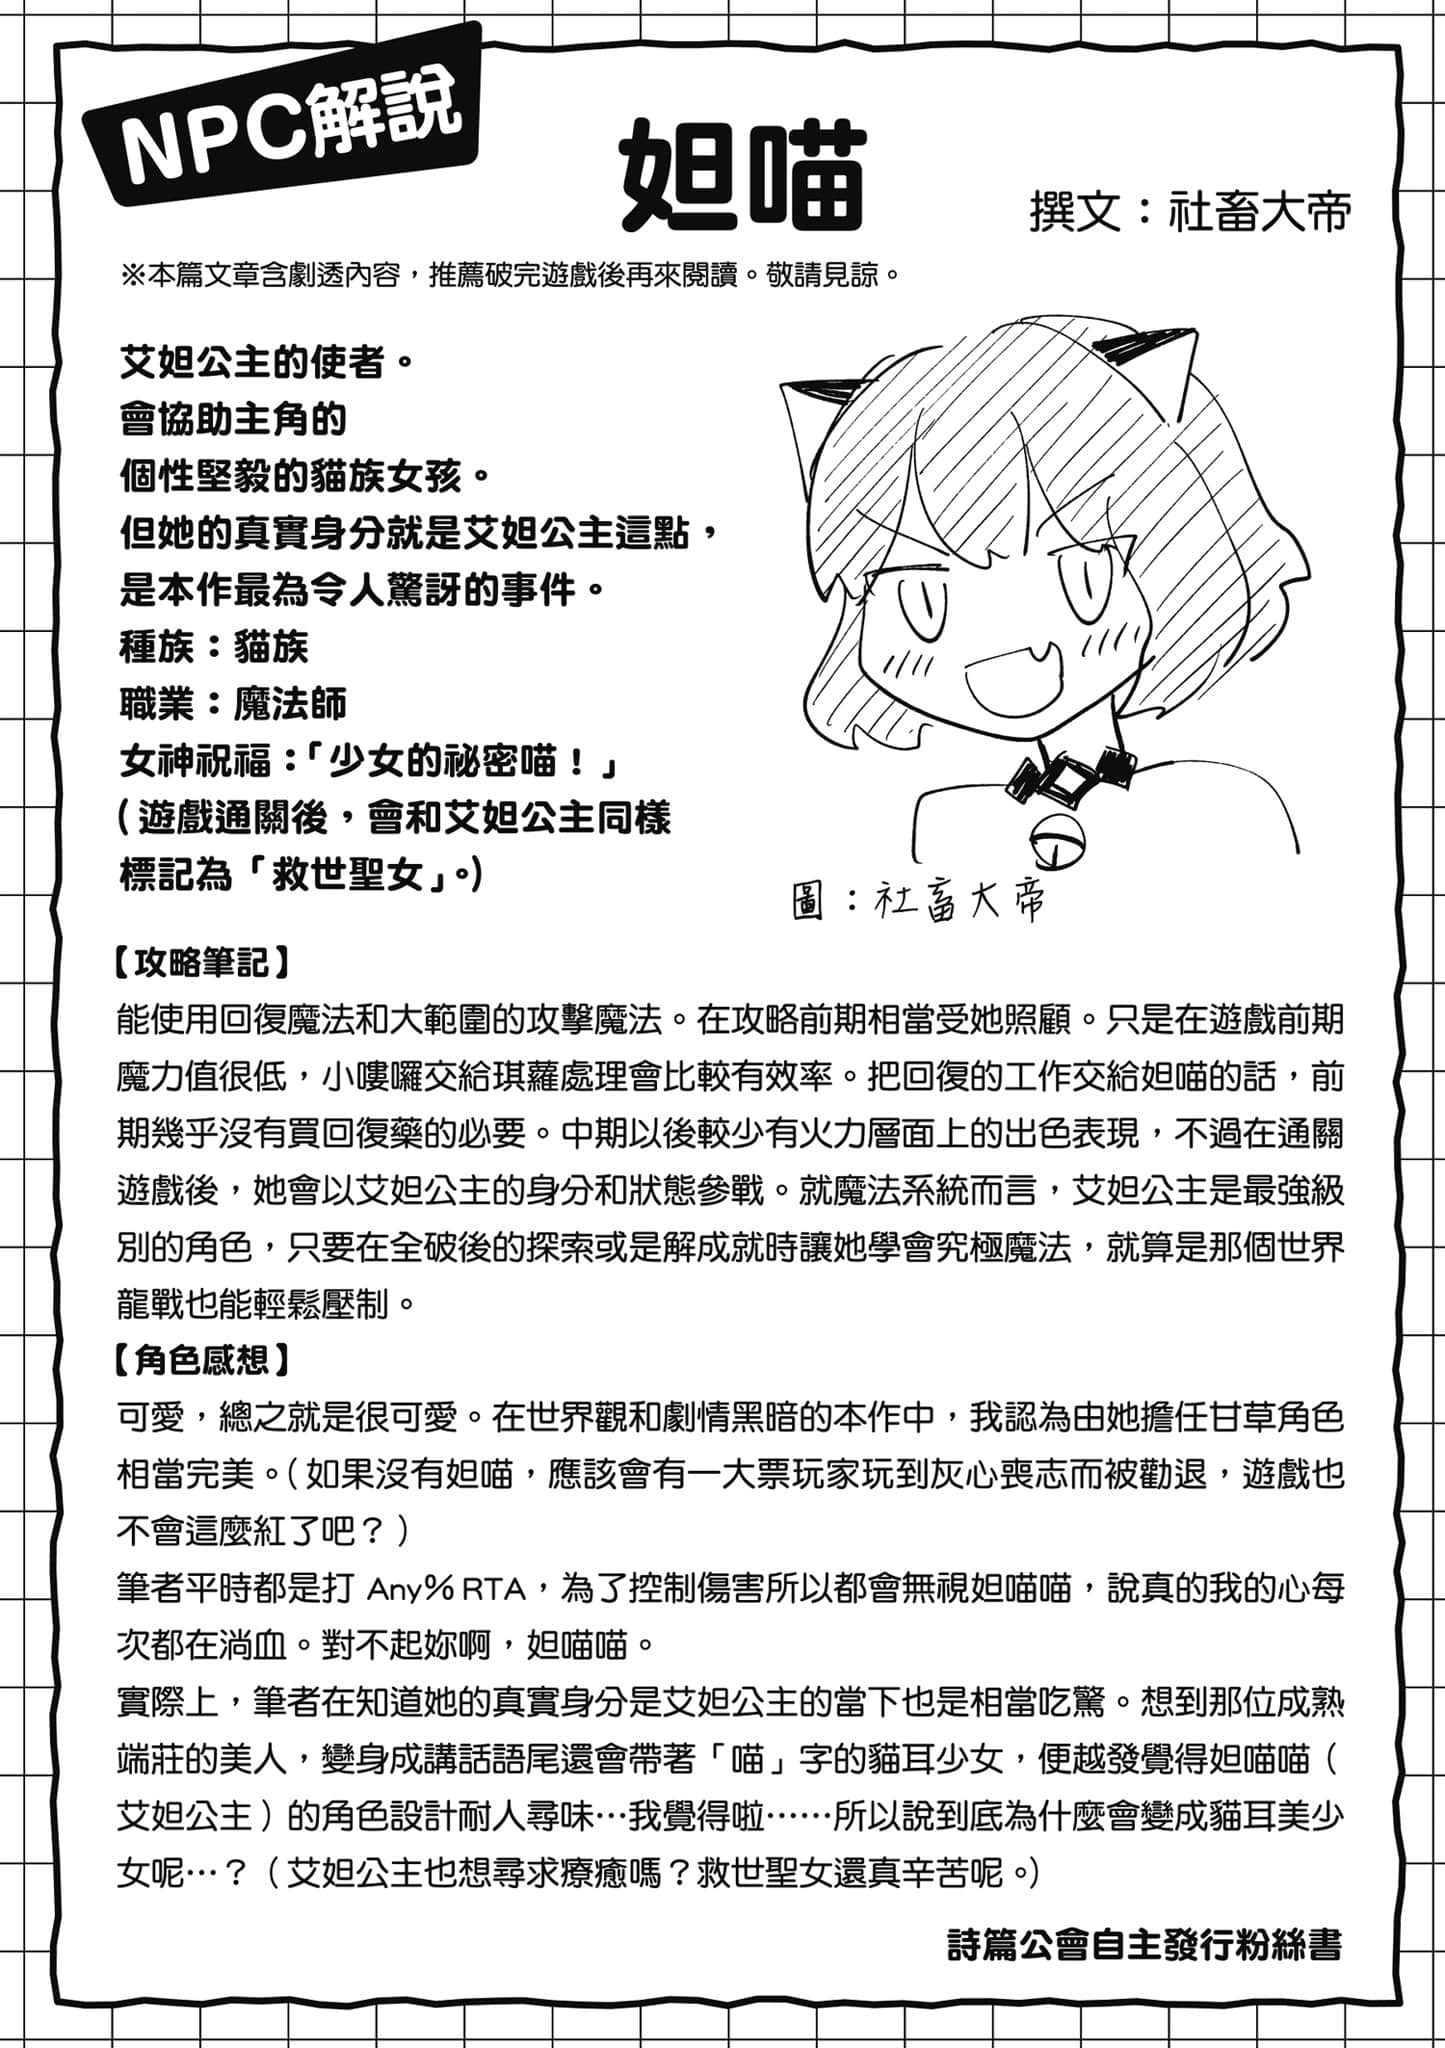 NPC解說
妲喵
撰文：社畜大帝
※本篇文章含劇透內容，推薦破完遊戲後再來閱讀。敬請見諒。
艾妲公主的使者。
會協助主角的
個性堅毅的貓族女孩。
但她的真實身分就是艾妲公主這點，
是本作最為令人驚訝的事件。
種族：貓族
職業：魔法師
女神祝福：「少女的祕密喵！」
（遊戲通關後，會和艾妲公主同樣
標記為「救世聖女」。）
圖：社畜大帝
【攻略筆記】
能使用回復魔法和大範圍的攻擊魔法。在攻略前期相當受她照顧。只是在遊戲前期
魔力值很低，小嘍囉交給琪蘿處理會比較有效率。把回復的工作交給妲喵的話，前
期幾乎沒有買回復藥的必要。中期以後較少有火力層面上的出色表現，不過在通關
遊戲後，她會以艾妲公主的身分和狀態參戰。就魔法系統而言，艾妲公主是最強級
別的角色，只要在全破後的探索或是解成就時讓她學會究極魔法，就算是那個世界
龍戰也能輕鬆壓制。
【角色感想】
可愛，總之就是很可愛。在世界觀和劇情黑暗的本作中，我認為由她擔任甘草角色
相當完美。（如果沒有妲喵，應該會有一大票玩家玩到灰心喪志而被勸退，遊戲也
不會這麼紅了吧？）
筆者平時都是打 Any% RTA，為了控制傷害所以都會無視妲喵喵，說真的我的心每
次都在淌血。對不起妳啊，妲喵喵。
實際上，筆者在知道她的真實身分是艾妲公主的當下也是相當吃驚。想到那位成熟
端莊的美人，變身成講話語尾還會帶著「喵」字的貓耳少女，便越發覺得妲喵喵（
艾妲公主）的角色設計耐人尋味…我覺得啦……所以說到底為什麼會變成貓耳美少
女呢…？（艾妲公主也想尋求療癒嗎？救世聖女還真辛苦呢。）
詩篇公會自主發行粉絲書